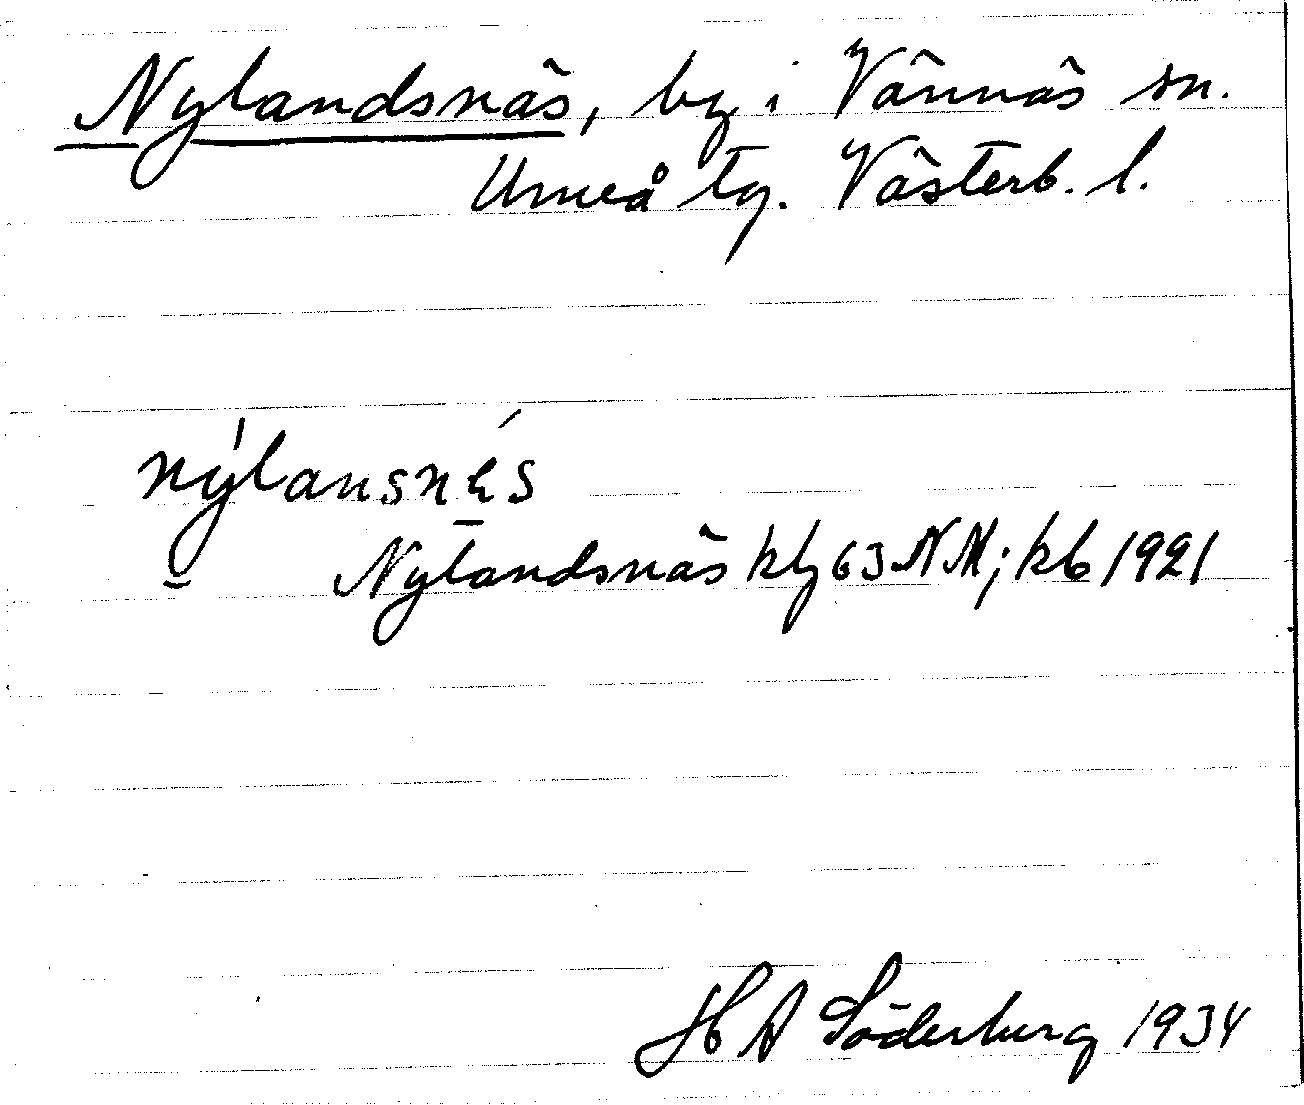 Nylandsnäs, by i Vännäs sn.
Umeå tg. Västerb. l.
nýlansnés
Nylandsnäs kbg 63 NM; kb 1921
H A Söderberg 1934